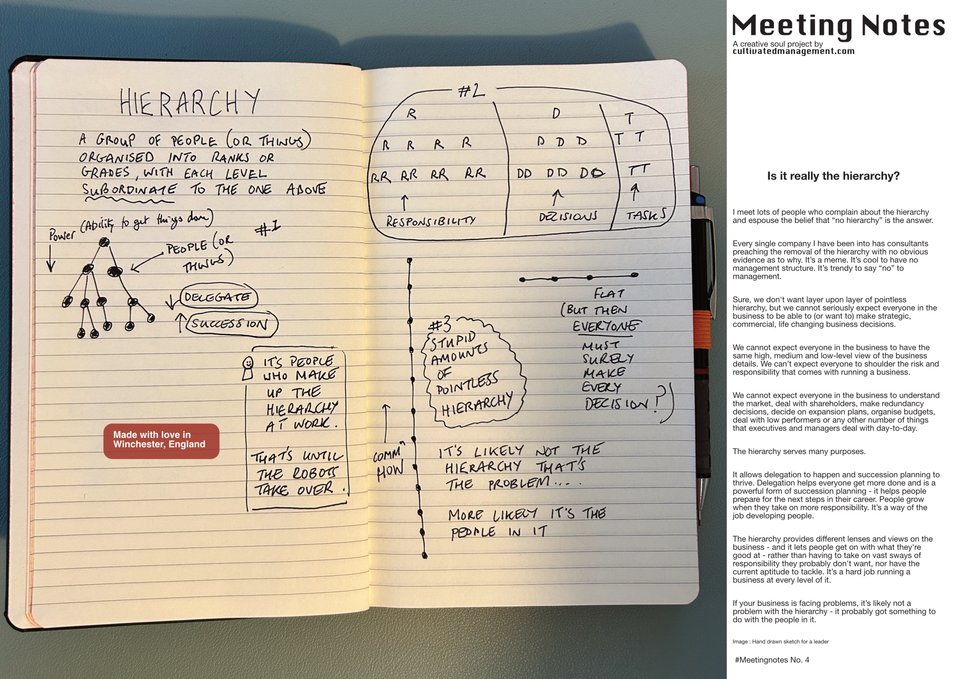 HIERARCHY
A GROUP OF PEOPLE (OR THINGS)
ORGANISED INTO RANKS OR
GRADES, WITH EACH LEVEL
SUBORDINATE TO THE ONE ABOVE
Power (Ability to get things done)
#1
PEOPLE (OR
THINGS)
DELEGATE
SUCCESSION
IT'S PEOPLE
WHO MAKE
UP THE
HIERARCHY
AT WORK.
THAT'S UNTIL
THE ROBOTS
TAKE OVER.
Made with love in
Winchester, England
#2
R D T
R R R R D D D T T
RR RR RR RR DD DD DD TT
RESPONSIBILITY DECISIONS TASKS
#3
STUPID
AMOUNTS
OF
POINTLESS
HIERARCHY
FLAT
(BUT THEN
EVERYONE
MUST
SURELY
MAKE
EVERY
DECISION?)
COMM
IT'S LIKELY NOT THE
HIERARCHY THAT'S
THE PROBLEM....
MORE LIKELY IT'S THE
PEOPLE IN IT
Meeting Notes
A creative soul project by
cultivatedmanagement.com
Is it really the hierarchy?
I meet lots of people who complain about the hierarchy
and espouse the belief that “no hierarchy” is the answer.
Every single company I have been into has consultants
preaching the removal of the hierarchy with no obvious
evidence as to why. It's a meme. It's cool to have no
management structure. It's trendy to say “no” to
management.
Sure, we don't want layer upon layer of pointless
hierarchy, but we cannot seriously expect everyone in the
business to be able to (or want to) make strategic,
commercial, life changing business decisions.
We cannot expect everyone in the business to have the
same high, medium and low-level view of the business
details. We can't expect everyone to shoulder the risk and
responsibility that comes with running a business.
We cannot expect everyone in the business to understand
the market, deal with shareholders, make redundancy
decisions, decide on expansion plans, organise budgets,
deal with low performers or any other number of things
that executives and managers deal with day-to-day.
The hierarchy serves many purposes.
It allows delegation to happen and succession planning to
thrive. Delegation helps everyone get more done and is a
powerful form of succession planning - it helps people
prepare for the next steps in their career. People grow
when they take on more responsibility. It's a way of the
job developing people.
The hierarchy provides different lenses and views on the
business - and it lets people get on with what they're
good at - rather than having to take on vast sways of
responsibility they probably don't want, nor have the
current aptitude to tackle. It's a hard job running a
business at every level of it.
If your business is facing problems, it's likely not a
problem with the hierarchy - it probably got something to
do with the people in it.
Image : Hand drawn sketch for a leader
#Meetingnotes No. 4